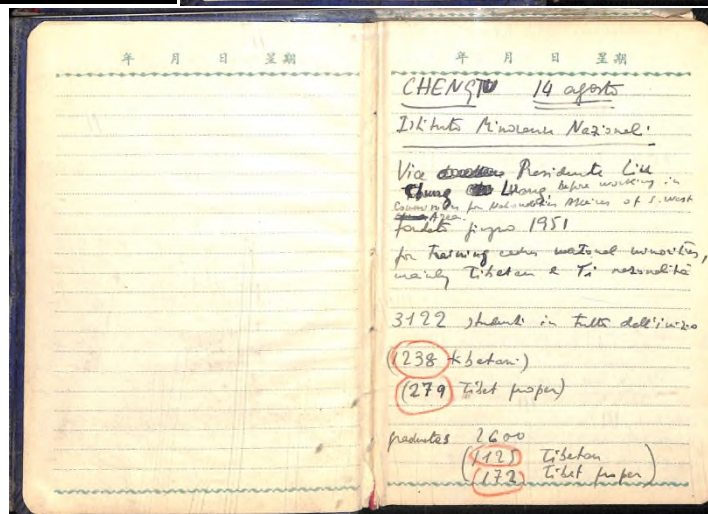 年 月 日 星期
年 月 日 星期
CHENGTU 14 agosto
Istituto Minoranze Nazionali.
Vice Presidente Liu
Chung Luong, before working in
Commission for Nationalities Affairs of S. West
Area.
fondato giugno 1951
for training cadres national minorities,
mainly Tibetan e Yi nazionalità
3122 studenti in tutto dall'inizio
(1238 tibetani)
(279 Tibet proper)
graduates 2600
(1125 Tibetan
172 Tibet proper)